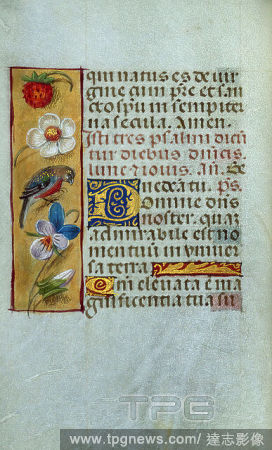 qui natus es de uir
gine cum pr̄e et san
cto sp̄u in sempiter
na secula. Amen.
Isti tres psalmi dicūt
tur diebus dn̄icis
lune ⁊ iouis. an̄. Be
nedicta tu. ps.
Domine dn̄s
noster: quā
admirabile est no
men tuū in vniuer
sa terra
Qm̄ eleuata ē ma
gnificentia tua
TPG
www.tpgnews.com/ 達志影像